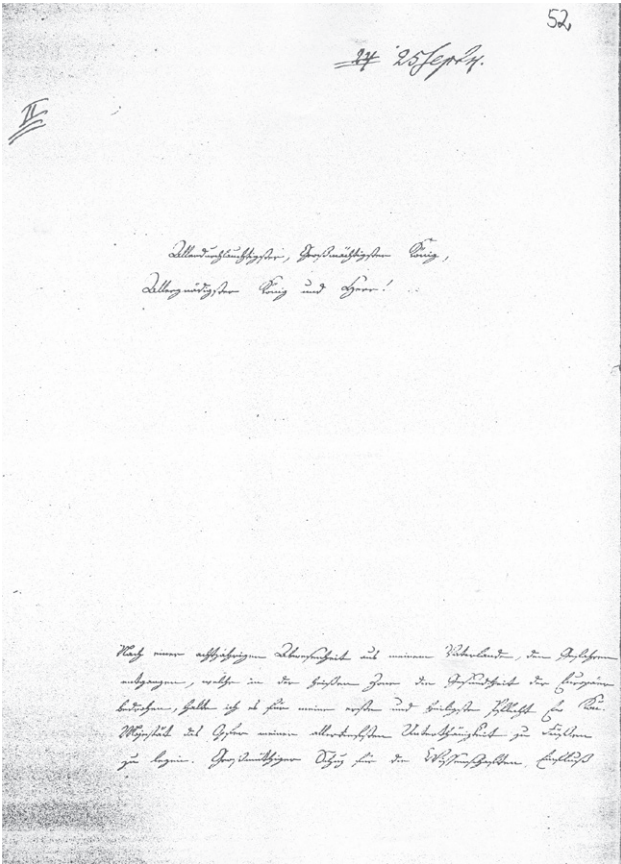 52
24 25 Sept.
II
Allerdurchlauchtigster, Großmächtigster König,
Allergnädigster König und Herr!
Nach einer achtjährigen Abwesenheit aus meinem Vaterlande, den Gefahren
entgangen, welche in der heißen Zone die Gesundheit der Europäer
bedrohen, halte ich es für meine erste und heiligste Pflicht Ew. Kön.
Majestät das Opfer meiner allertiefsten Unterthänigkeit zu Füßen
zu legen. Großmüthiger Schuz für die Wissenschaften, Einfluß